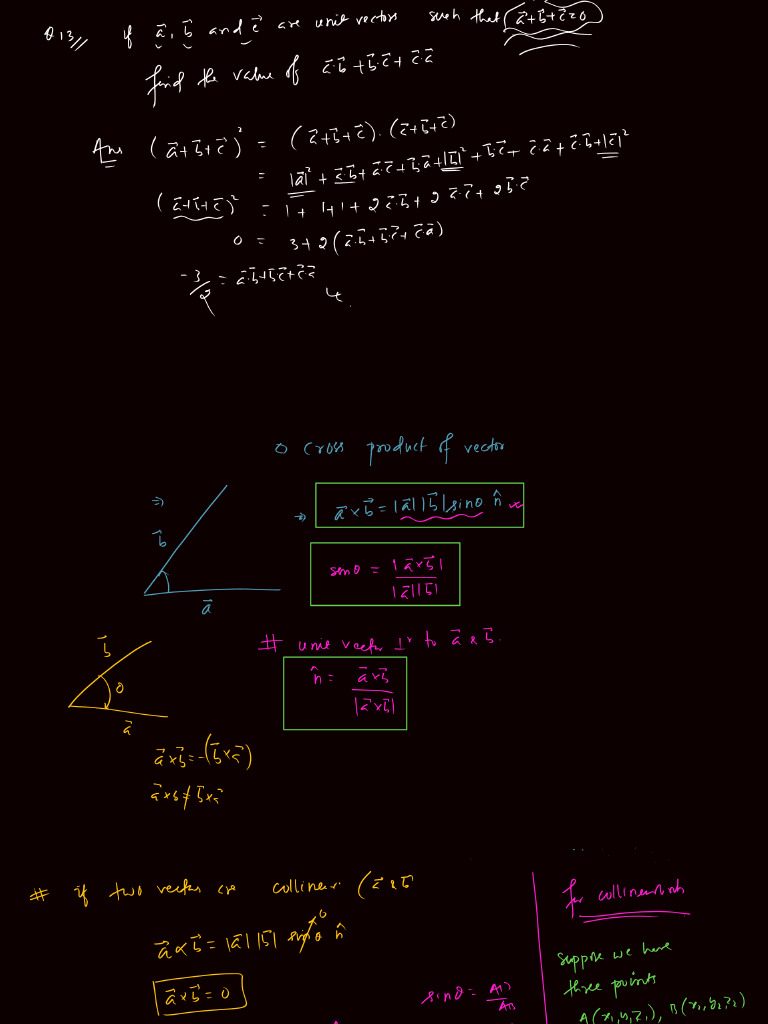 Q 13// if a⃗, b⃗ and c⃗ are unit vectors such that a⃗+b⃗+c⃗=0
find the value of a⃗.b⃗ + b⃗.c⃗ + c⃗.a⃗
Ans (a⃗+b⃗+c⃗)² = (a⃗+b⃗+c⃗).(a⃗+b⃗+c⃗)
= |a⃗|² + a⃗.b⃗ + a⃗.c⃗ + b⃗.a⃗ + |b⃗|² + b⃗.c⃗ + c⃗.a⃗ + c⃗.b⃗ + |c⃗|²
(a⃗+b⃗+c⃗)² = 1 + 1 + 1 + 2 a⃗.b⃗ + 2 a⃗.c⃗ + 2 b⃗.c⃗
0 = 3 + 2(a⃗.b⃗ + b⃗.c⃗ + c⃗.a⃗)
-3/2 = a⃗.b⃗ + b⃗.c⃗ + c⃗.a⃗
cross product of vector
⇒
⇒ a⃗×b⃗ = |a⃗||b⃗| sinθ n̂
b⃗
sinθ = |a⃗×b⃗| / |a⃗||b⃗|
a⃗
# unit vector ⊥r to a⃗ & b⃗.
b⃗
n̂ = a⃗×b⃗ / |a⃗×b⃗|
θ
a⃗
a⃗×b⃗ = -(b⃗×a⃗)
a⃗×b ≠ b⃗×a⃗
# if two vectors are collinear (a⃗ & b⃗
for collinear
a⃗×b⃗ = |a⃗||b⃗| sinθ n̂
0
suppose we have
a⃗×b⃗ = 0
three points
sinθ =
A(x₁,y₁,z₁), B(x₂,y₂,z₂)